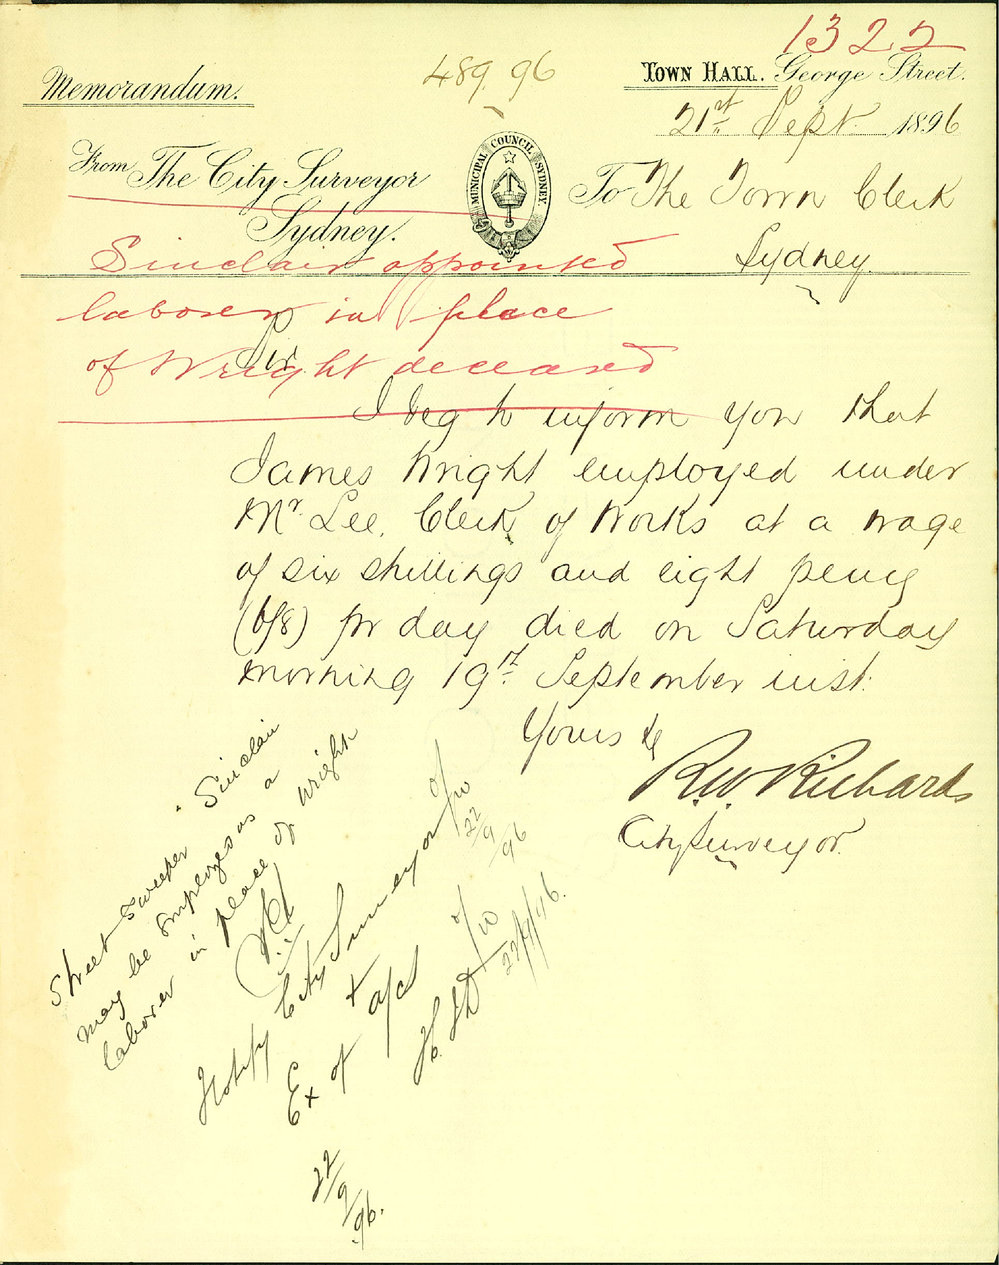 1322
489.96
Memorandum.
TOWN HALL. George Street.
21st Sept 1896
From The City Surveyor
Sydney.
MUNICIPAL COUNCIL SYDNEY.
To The Town Clerk
Sydney.
Sinclair appointed
laborer in place
of Wright deceased
Sir
I beg to inform you that
James Wright employed under
Mr. Lee, Clerk of Works at a wage
of six shillings and eight pency
(6/8) pr day died on Saturday
morning 19th September inst.
Yours &c
R.W. Richards
City Surveyor.
Street Sweeper Sinclair
may be employed as a
laborer in place of Wright
Notify City Surveyor
+ Ex of a/cs
22/9/96
22/9/96.
22/9/96.